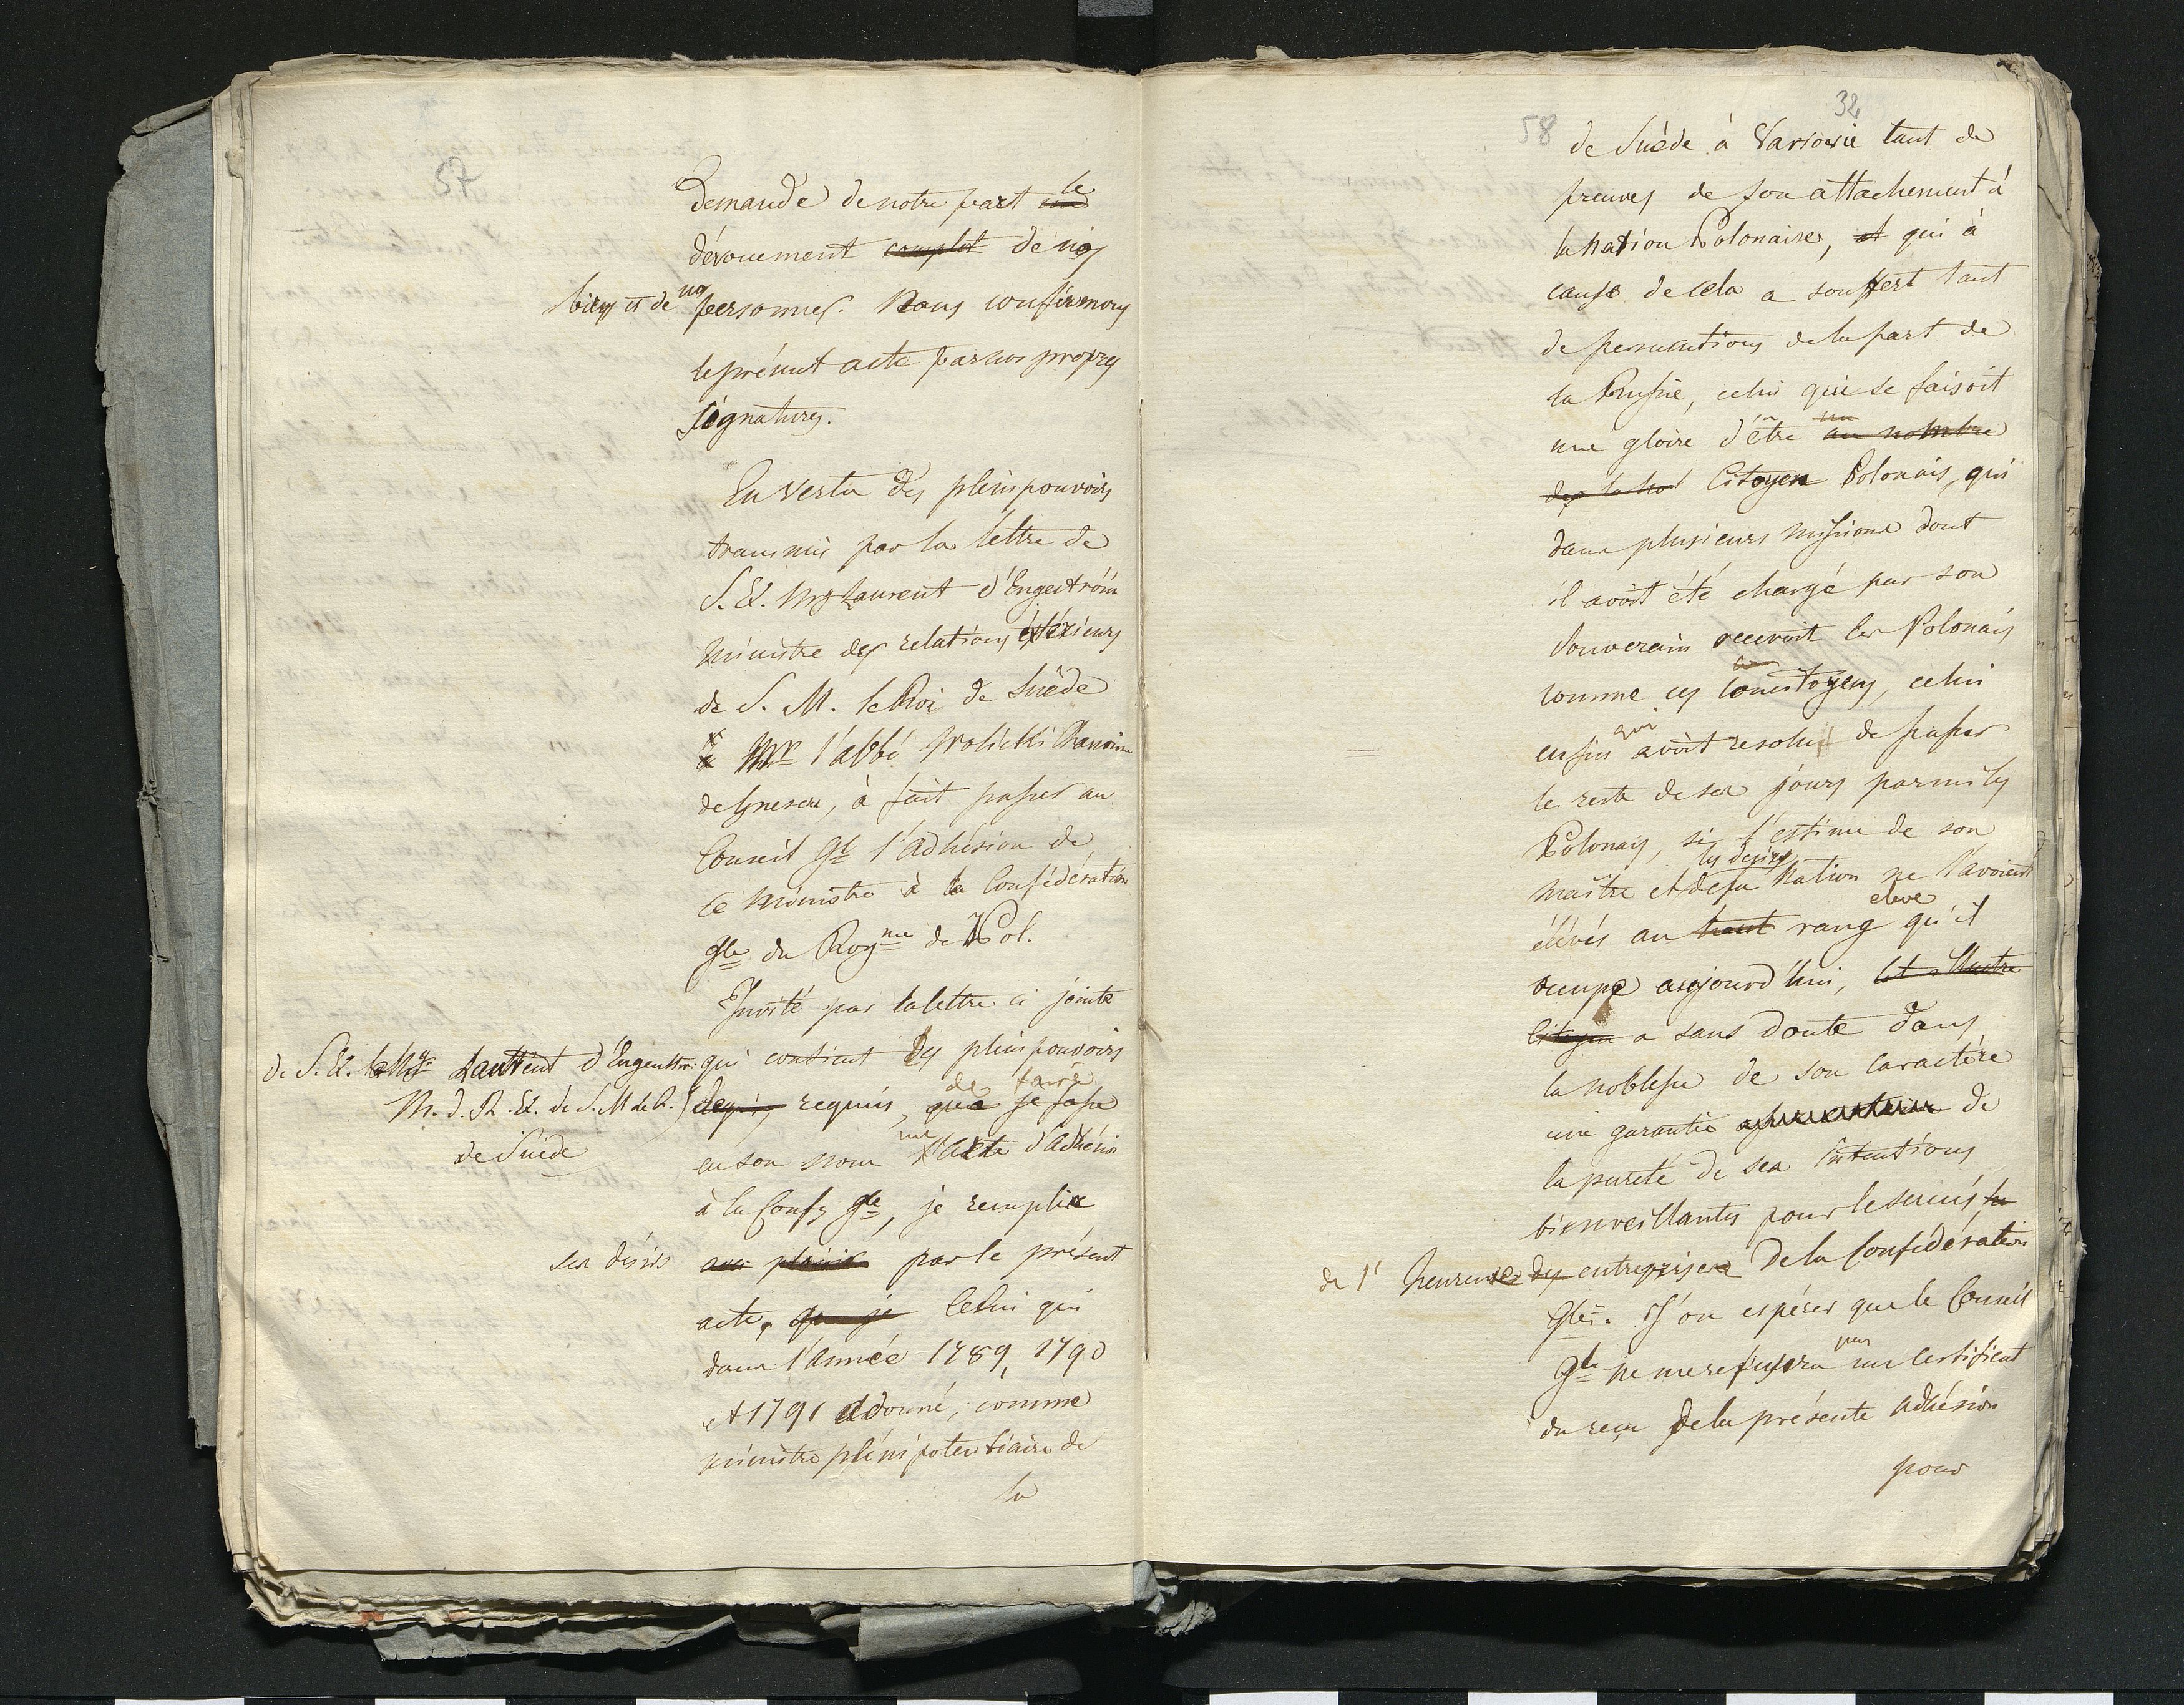 57
Demande de notre part le
dévouement complet de nos
biens et de nos personnes. Nous confirmons
le présent acte par nos propres
signatures.
En vertu des pleinspouvoirs
transmis par la lettre de
S. E. Mr Laurent d'Engeström
Ministre des relations extérieurs
de S. M. le Roi de Suède
à Mr l'abbé Wolicki Chanoine
de Gnesen, à fait passer au
Conseil Gl l'Adhésion de
ce Ministre à la Confédération
Gle du Royme de Pol.
Invité par la lettre ci jointe
de S. E. Mr Laurent d'Engestr: qui contient des pleinspouvoirs
M. d. R. E. de S. M. le R. requis, de faire que je fasse
de Suède en son nom une l'acte d'adhésion
à la Conf. Gle, je remplis
ses désirs avec plaisir par le présent
acte, que je Celui qui
dans l'Année 1789, 1790
et 1791 a donné, comme
ministre plénipotentiaire de
la
32
58
de Suède à Varsovie tant de
preuves de son attachement à
la Nation Polonaise, et qui à
cause de cela a souffert tant
de persecutions de la part de
la Prussie, celui qui se faisoit
une gloire d'être un au nombre
des Citoyen Polonais, qui
dans plusieurs missions dont
il avoit été chargé par son
Souverain recevoit les Polonais
comme ces concitoyens, celui
enfin qui avoit resolu de passer
le reste de ses jours parmi les
Polonais, si l'estime de son
maître et les desirs de sa Nation ne l'avoient
élévés au haut rang elevé qu'il
occupe aujourd'hui, Cet illustre
Citoyen a sans doute dans
la noblesse de son caractère
une garantie de
la pureté de ses intentions
bienveillantes pour le succès
de l'heureuse des entreprises de la Confédération
Gle. J'ose espérer que le Conseil
Gl ne me refusera pas un certificat
du reçu de la présente adhésion
pour